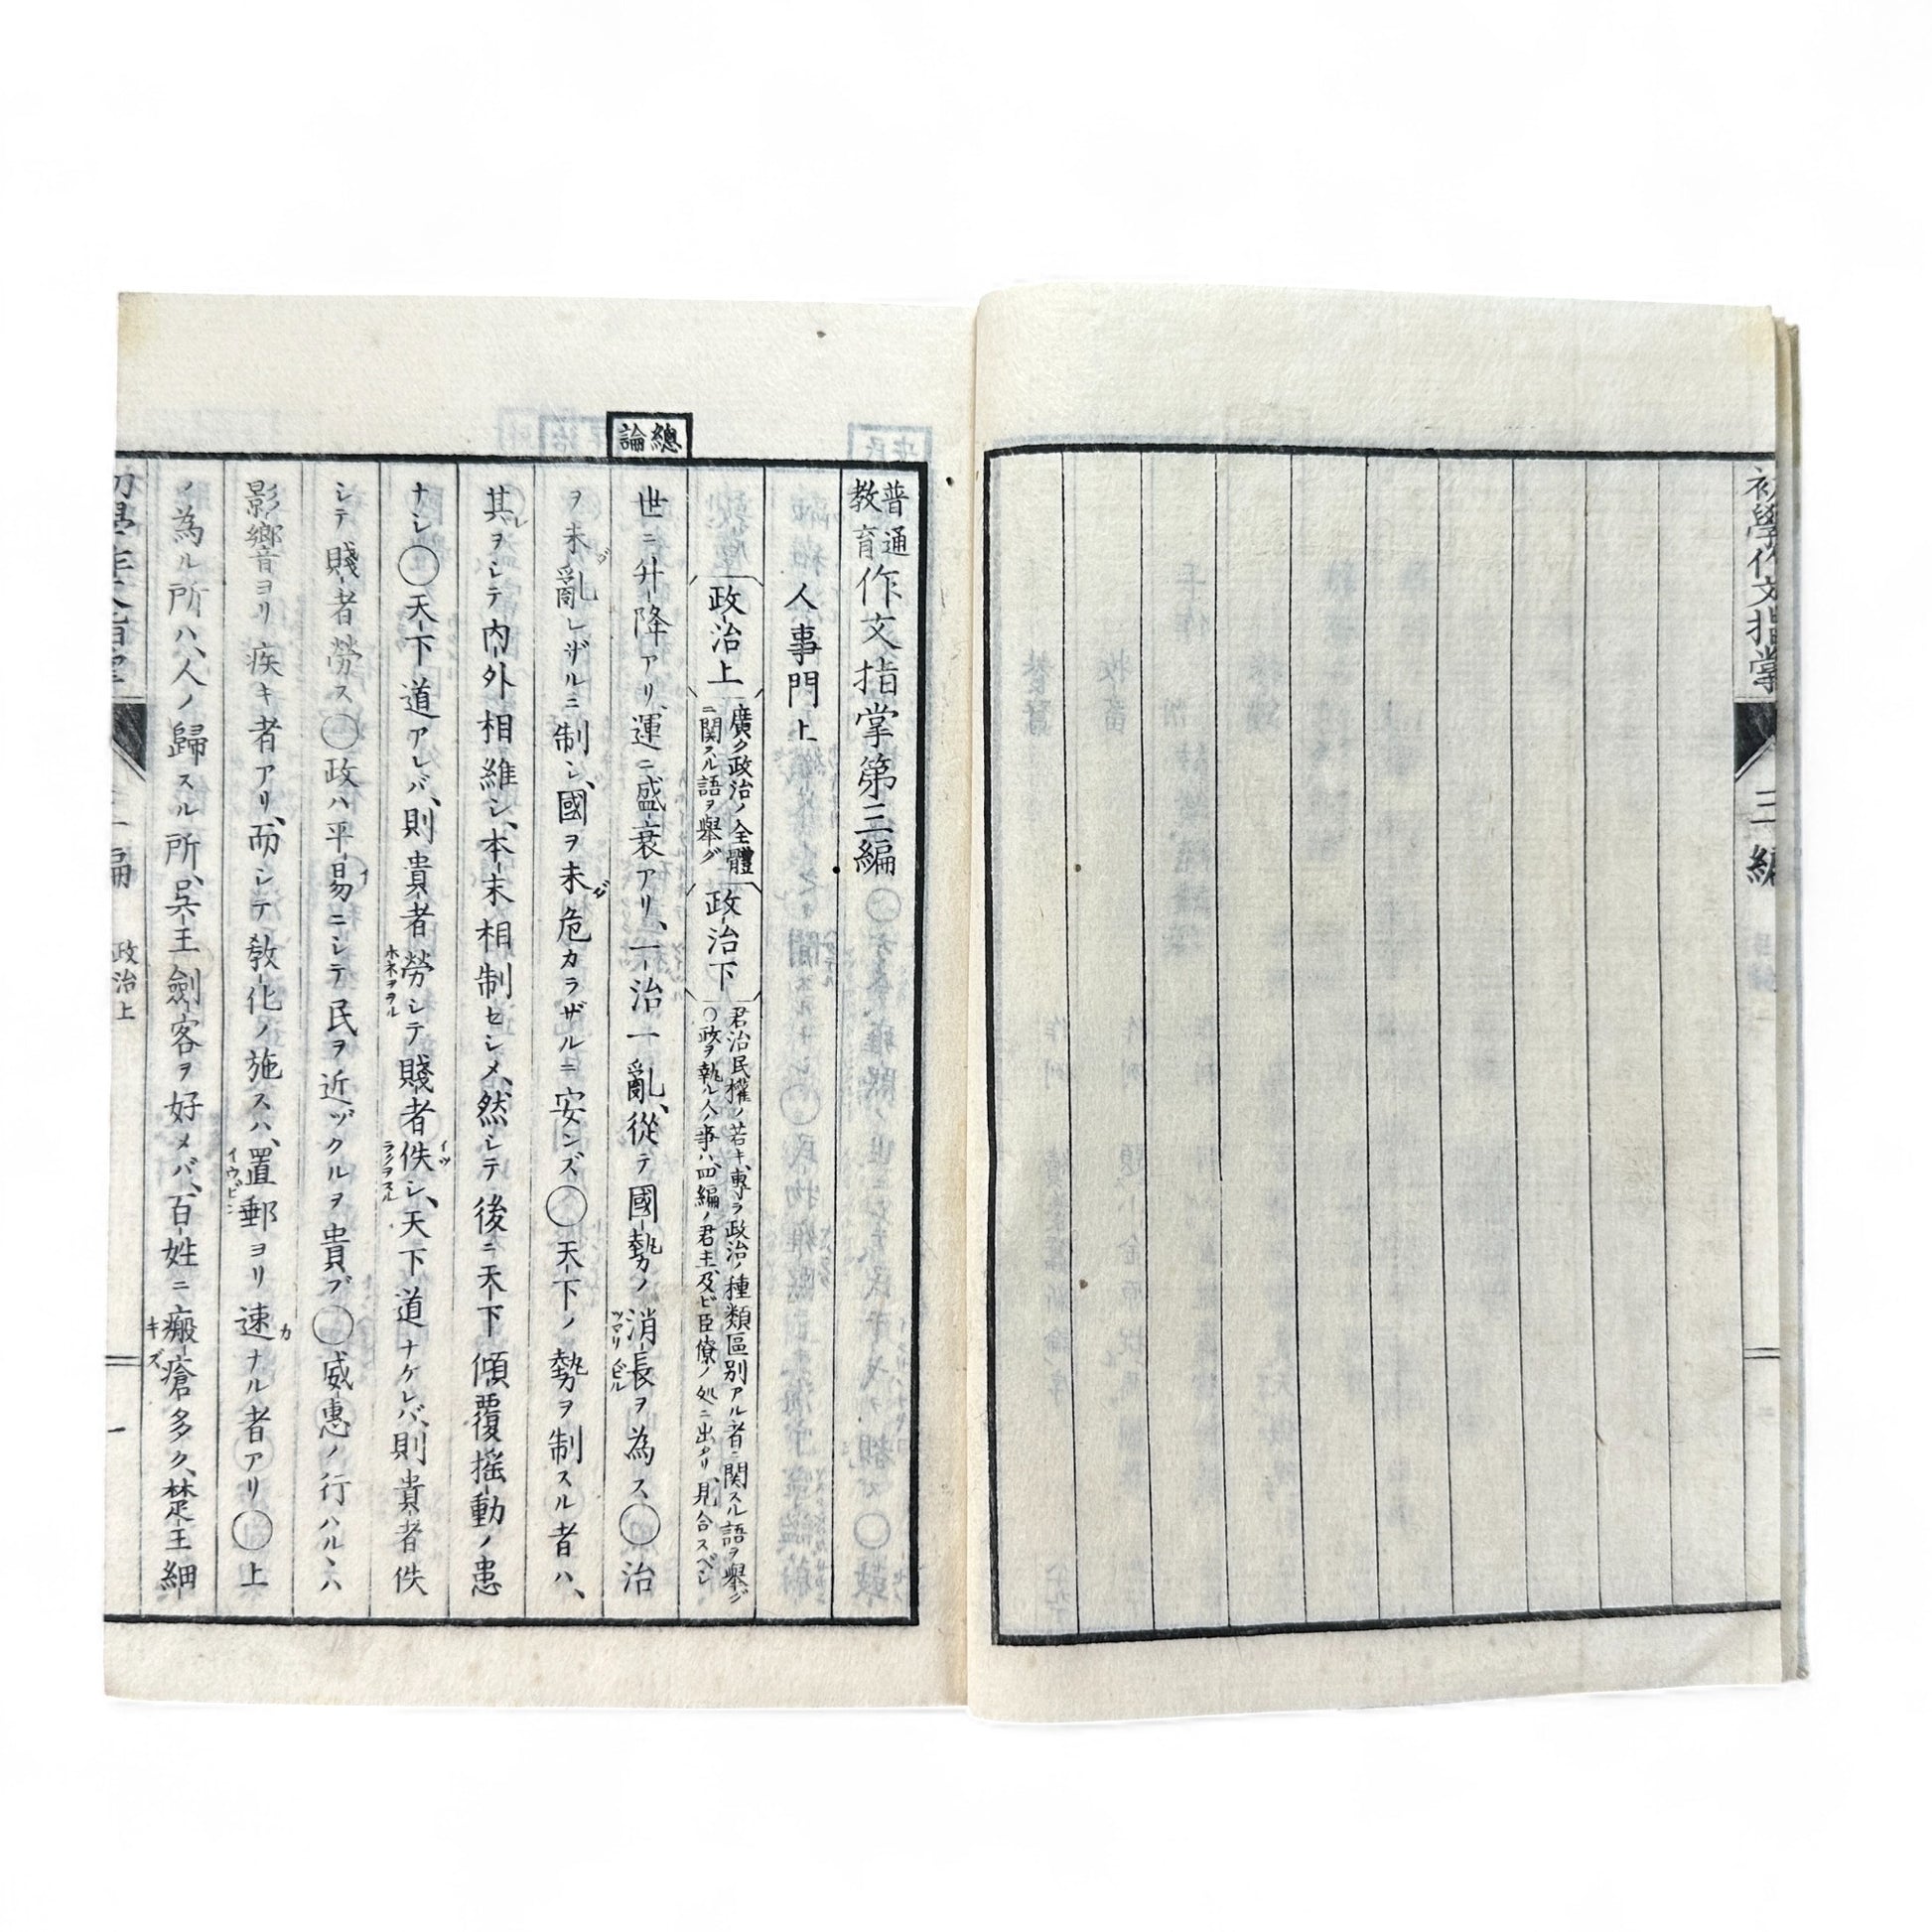 初學作文指掌 三編
普通教育 作文指掌第三編
人事門上
政治上 廣ク政治ノ全體ニ関スル語ヲ舉グ 政治下 君治民權ノ若キ、專ラ政治ノ種類區別アル者ニ関スル語ヲ舉グ○政ヲ執ル人ノ事ハ、四編ノ君主及ビ臣僚ノ処ニ出タリ、見合スベシ
總論
世ニ升降アリ、運ニ盛衰アリ、一治一亂、從テ國勢ノ消長ヲ為ス○治
ツマリ ノビル
ヲ未ダ亂レザルニ制シ、國ヲ未ダ危カラザルニ安ンズ○天下ノ勢ヲ制スル者ハ、
其レヲシテ内外相維シ、本末相制セシメ、然シテ後ニ天下傾覆搖動ノ患
ナシ○天下道アレバ、則貴者勞シテ賤者佚シ、天下道ナケレバ、則貴者佚
ホネヲヲル イツ ラクヲスル
シテ賤者勞ス○政ハ平易ニシテ民ヲ近ヅクルヲ貴ブ○威惠ノ行ハルヽハ
イ
影響ヨリ疾キ者アリ、而シテ敎化ノ施スハ、置郵ヨリ速カナル者アリ○上
イウビン
ノ為ル所ハ、人ノ歸スル所、呉王劍客ヲ好メバ、百姓ニ瘢瘡多ク、楚王細
キズ
政治上
一